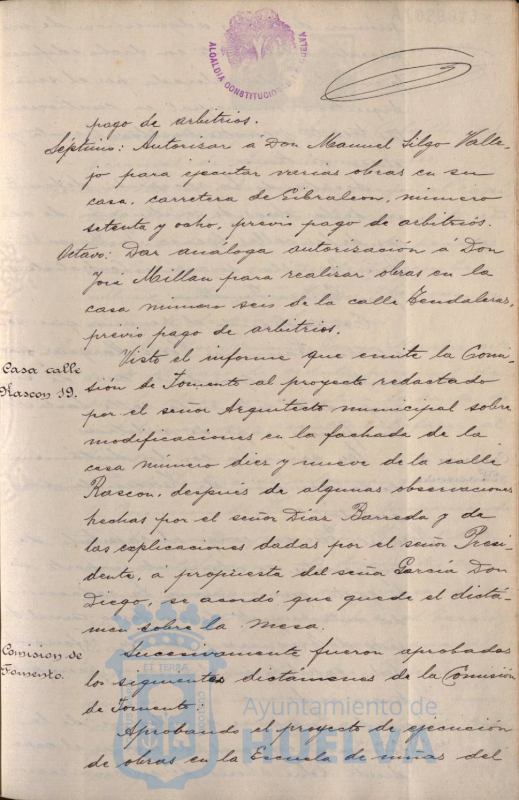 ALCALDIA CONSTITUCIONAL HUELVA
pago de arbitrios.
Séptimo: Autorizar á Don Manuel Silgo Valle-
jo para ejecutar varias obras en su
casa, carretera de Gibraleon, número
setenta y ocho, previo pago de arbitriós.
Octavo: Dar análoga autorización á Don
José Millan para realizar obras en la
casa número seis de la calle Tendaleras,
previo pago de arbitrios.
Casa calle
Rascon 19.
Visto el informe que emite la Comi-
sión de Fomento al proyecto redactado
por el señor Arquitecto municipal sobre
modificaciones en la fachada de la
casa número diez y nueve de la calle
Rascon, después de algunas observaciones
hechas por el señor Diaz Barreda y de
las explicaciones dadas por el señor Presi-
dente, á propuesta del señor García Don
Diego, se acordó que quede el dictá-
men sobre la mesa.
Comision de
Fomento.
Sucesivamente fueron aprobados
los siguientes dictámenes de la Comisión
de Fomento.
Aprobando el proyecto de ejecución
de obras en la Escuela de minas del
Ayuntamiento de
HUELVA